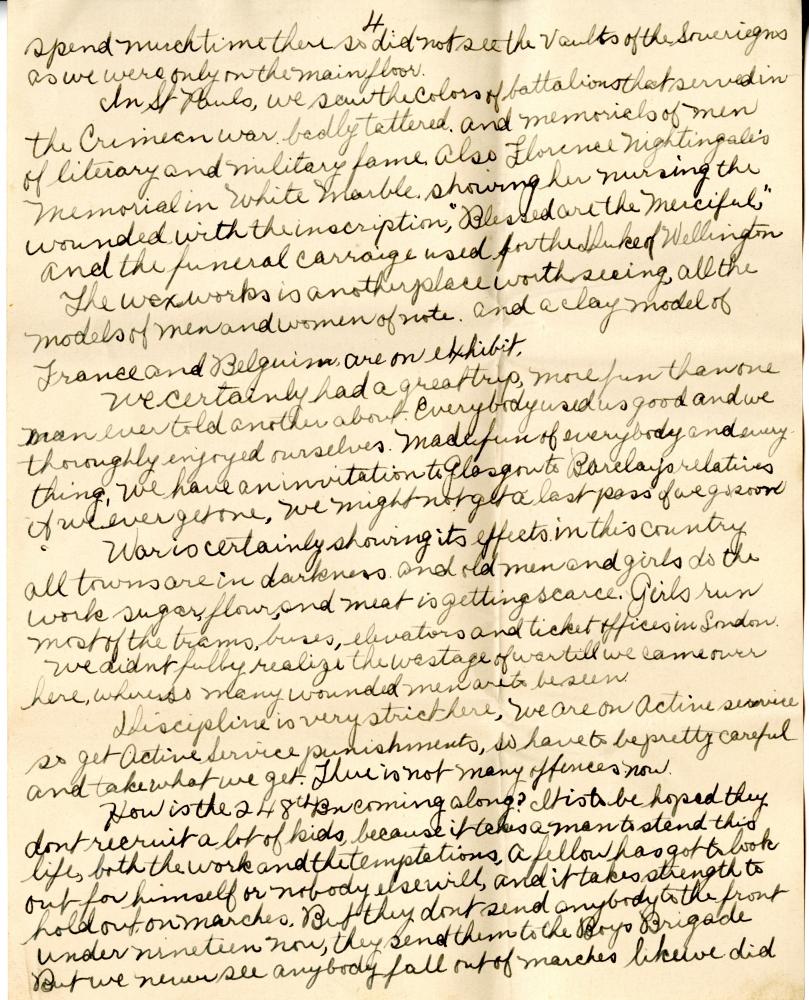 4
spend much time there so did not see the Vaults of the Soveriegns
as we were only on the main floor.
In St Pauls, we saw the colors of battalions that served in
the Crimean war badly tattered. and memorials of men
of literary and military fame. Also Florence Nightingale's
Memorial in White Marble. showing her nursing the
wounded with the inscription, "Blessed are the Merciful,"
and the funeral carraige used for the Duke of Wellington
The wax works is another place worth seeing, all the
models of men and women of note. and a clay model of
France and Belguim, are on exhibit.
We certainly had a great trip, more fun than one
man ever told another about. Everybody used us good and we
thoroughly enjoyed ourselves. Made fun of everybody and every-
thing, We have an invitation to Glasgow to Barclay's relatives
if we ever get one, We might not get a last pass if we go soon
War is certainly showing its effects in this country
all towns are in darkness. and old men and girls do the
work sugar, flour, and meat is getting scarce. Girls run
most of the trams, buses, elevators and ticket offices in London.
We didnt fully realize the wastage of war till we came over
here, where so many wounded men are to be seen.
Discipline is very strict here, We are on Active service
so get Active Service punishments, so have to be pretty careful
and take what we get. There is not many offences now.
How is the 248th Bn coming along? It is to be hoped they
dont recruit a lot of kids, because it takes a man to stand this
life, both the work and the temptations, a fellow has got to look
out for himself or nobody else will, and it takes strength to
hold out on marches. But they dont send anybody to the front
under nineteen now, they send them to the Boys Brigade
But we never see anybody fall out of marches like we did